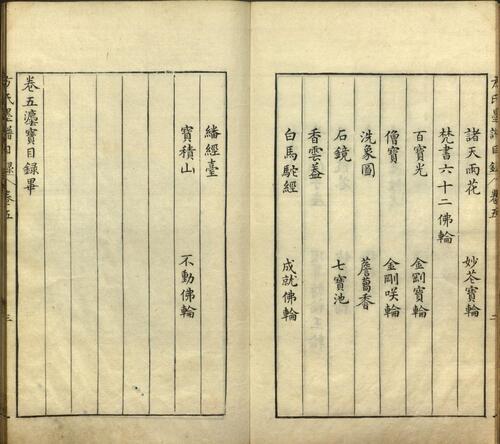 諸天雨花 妙花寶輪
梵書六十二佛輪
百寶光 金剛寶輪
僧寶 金剛咲輪
洗象圖 薝蔔香
石鏡 七寶池
香雲蓋
白馬駝經 成就佛輪
繙經臺
寶積山 不動佛輪
卷五瀍寶目錄畢
方氏墨譜目錄 卷五